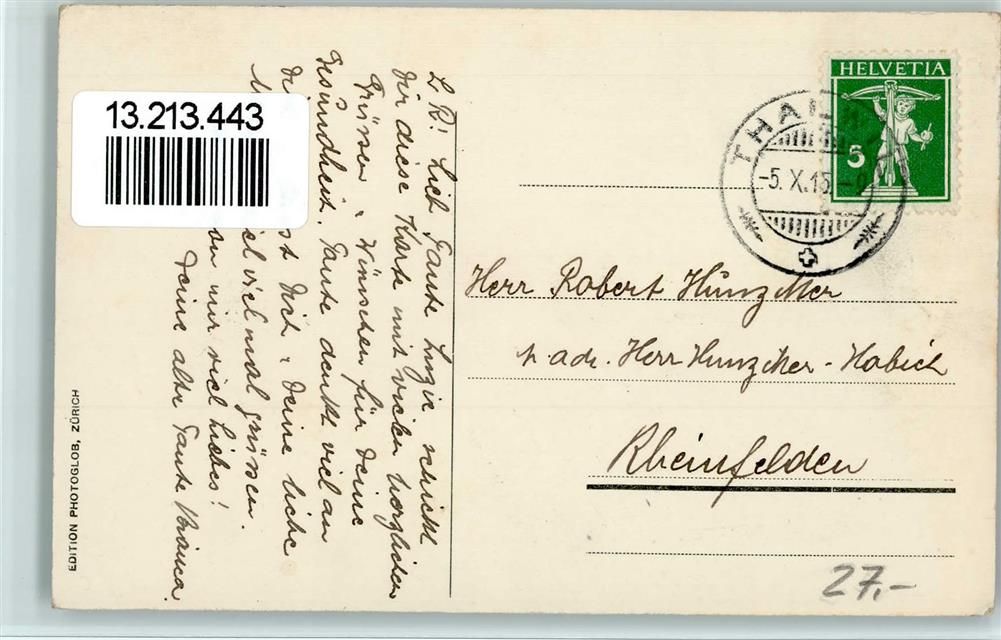 13.213.443
L. R! Lieb Tante Luzie schickt
Dir diese Karte mit vielen herzlichen
Grüssen u. Wünschen für Deine
Gesundheit. Tante denkt viel an
Dich u. Deine liebe
viel viel mal grüssen.
von mir viel Liebes!
Deine alte Tante
EDITION PHOTOGLOB, ZÜRICH
HELVETIA
5
THAL
-5. X. 15
Herr Robert Hunziker
p. adr. Herr Hunziker-Habich
Rheinfelden
27.-